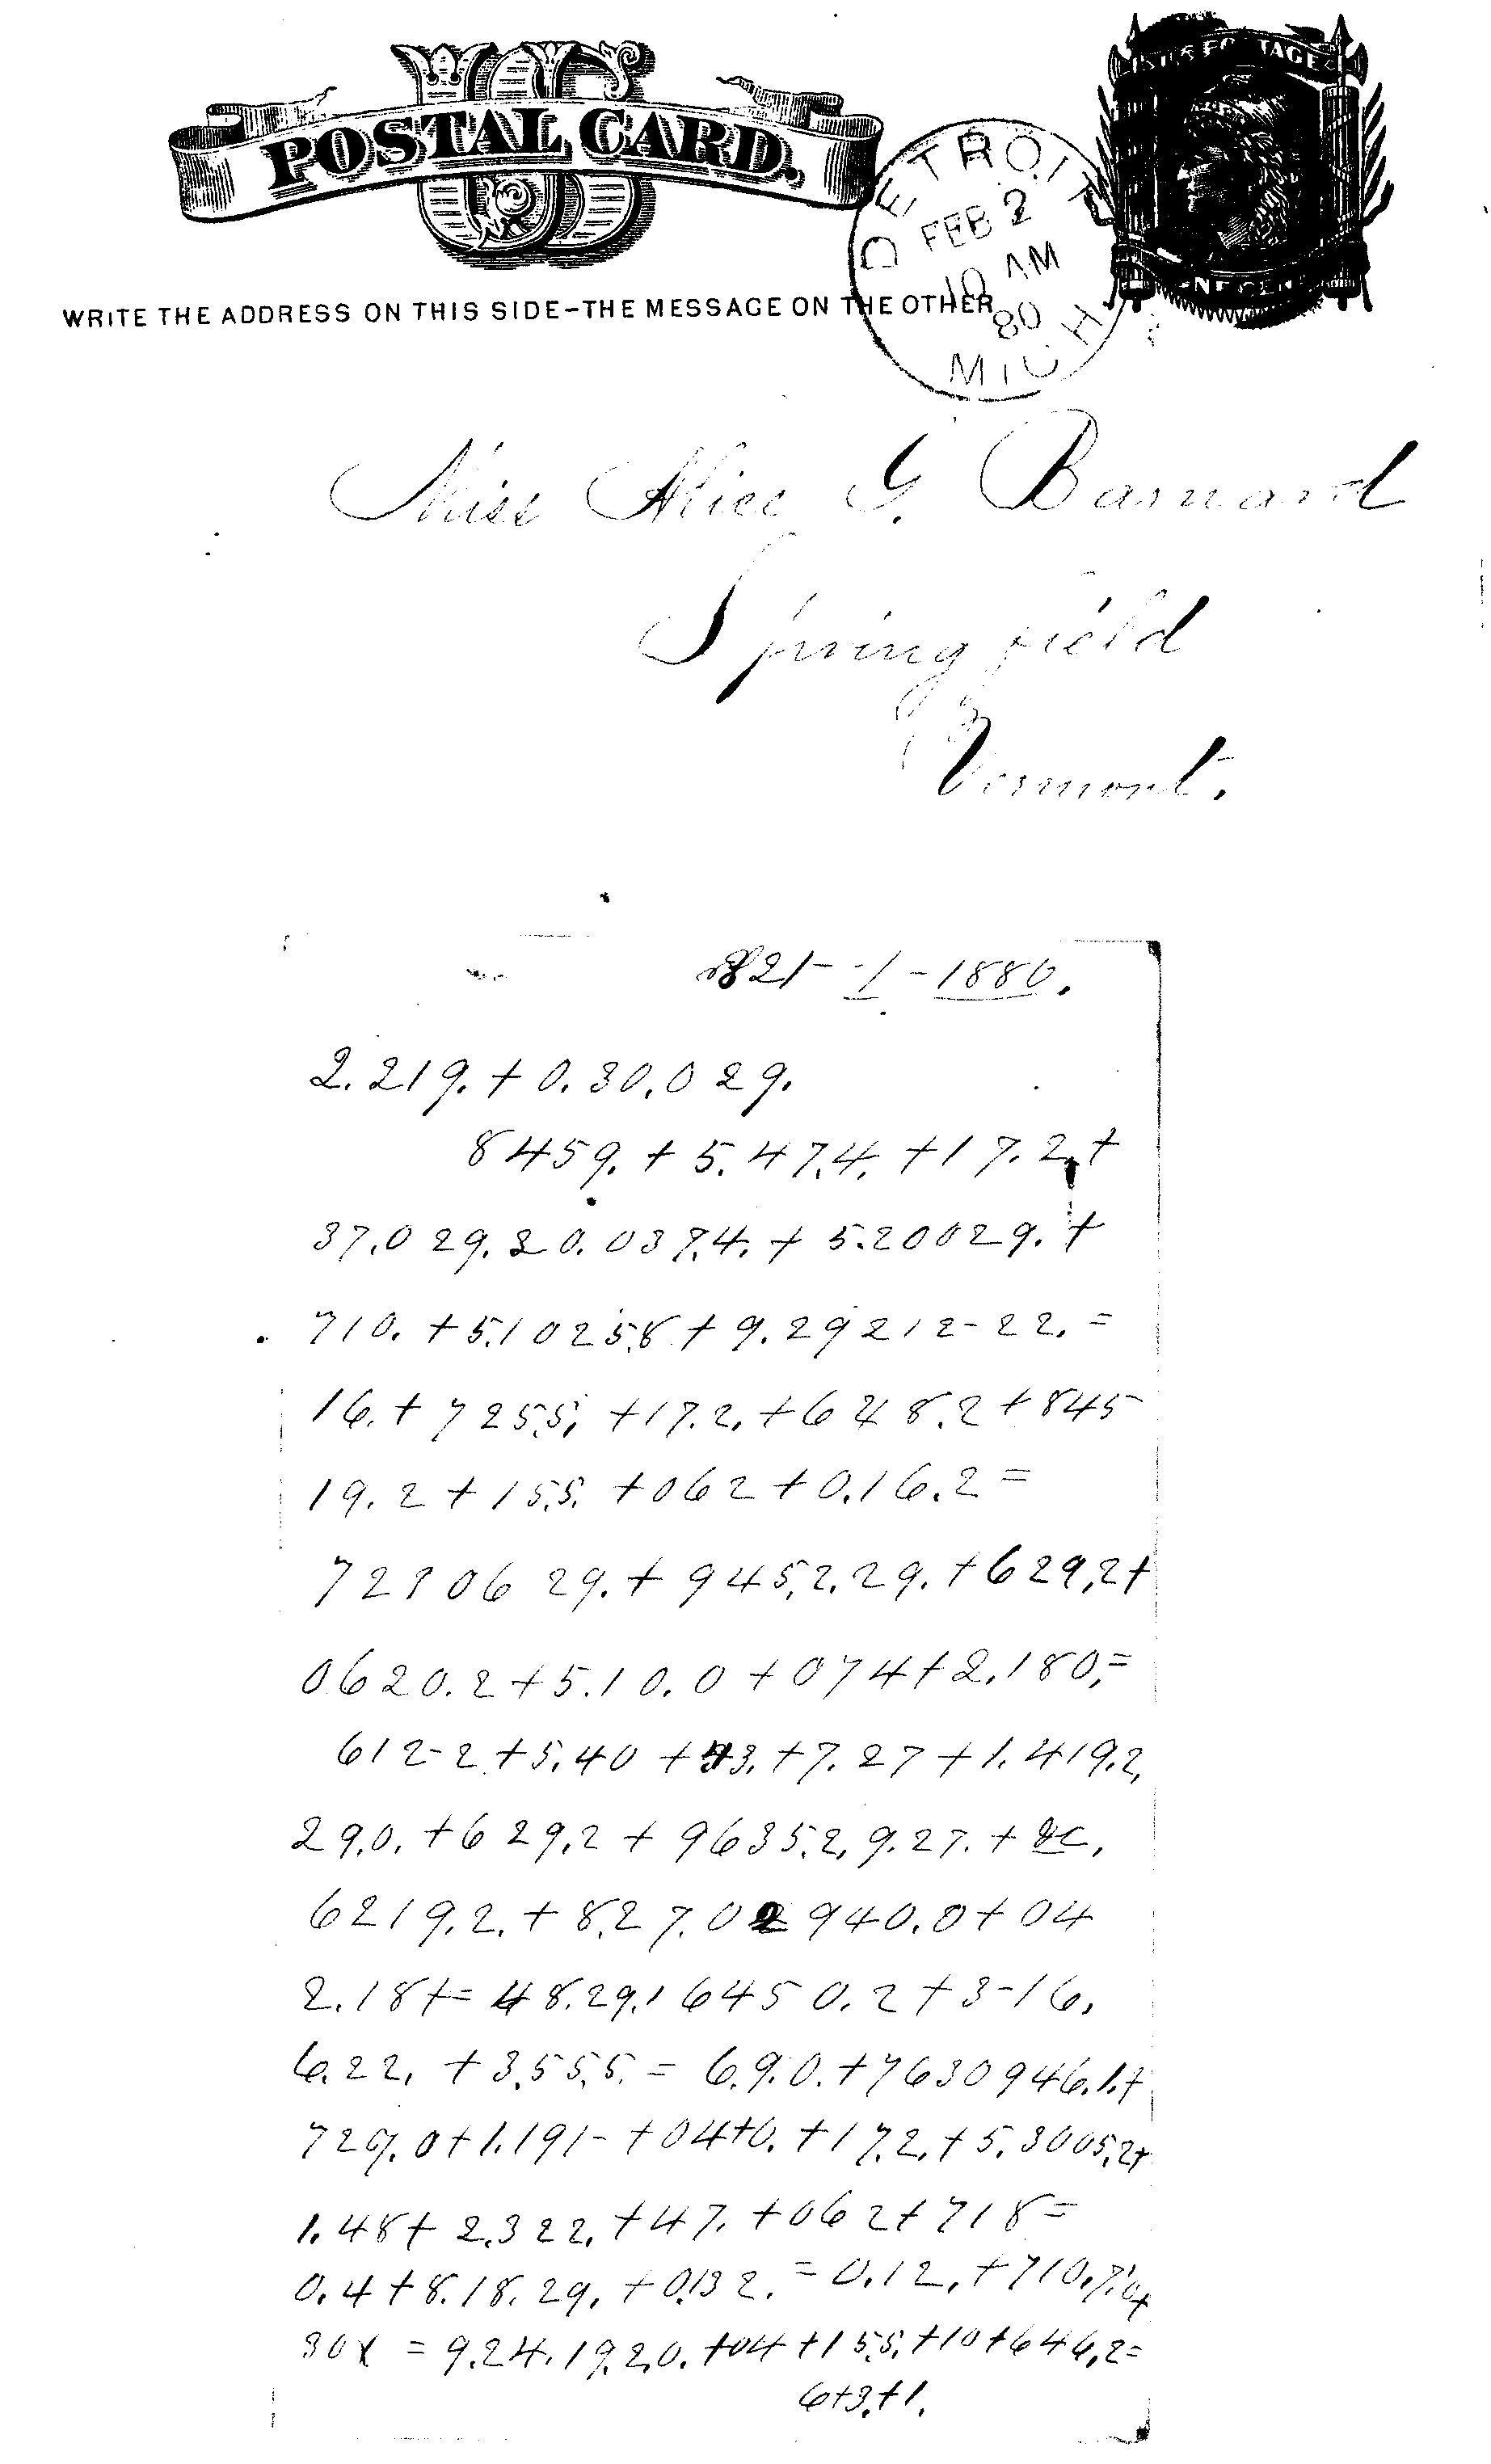 US
POSTAL CARD.
U.S. POSTAGE
ONE CENT
DETROIT
FEB 2
10 AM
80
MICH
WRITE THE ADDRESS ON THIS SIDE-THE MESSAGE ON THE OTHER
Miss Alice G. Barnard
Springfield
Vermont.
821- -1-1880.
2.219.+0.30.029.
8459.+5.47.4.+17.2.+
37.029.20.037.4.+5.20029.+
710.+5.1025.8+9.29212-22.=
16.+7255.+17.2.+628.2+845
19.2+15.5.+062+0.16.2=
7210629.+945.2.29.+629.2+
0620.2+5.10.0+074+2.180.=
612-2+5.40+43.+7.27+1.419.2.
29.0.+629.2+9635.2.9.27.+&c.
6219.2.+8.27.02940.0+04
2.18+=48.29.1645 0.2+3-16.
6.22.+3.55.5.=6.9.0.+7630946.1.+
729.0+1.191-+04+0.+17.2.+5.3005.2+
1.48+2.322.+47.+062+718=
0.4+8.18.29.+0.132.=0.12.+710.7.0+
30X=9.24.19.2.0.+04+15.5.+10+646.2=
6+3.+1.